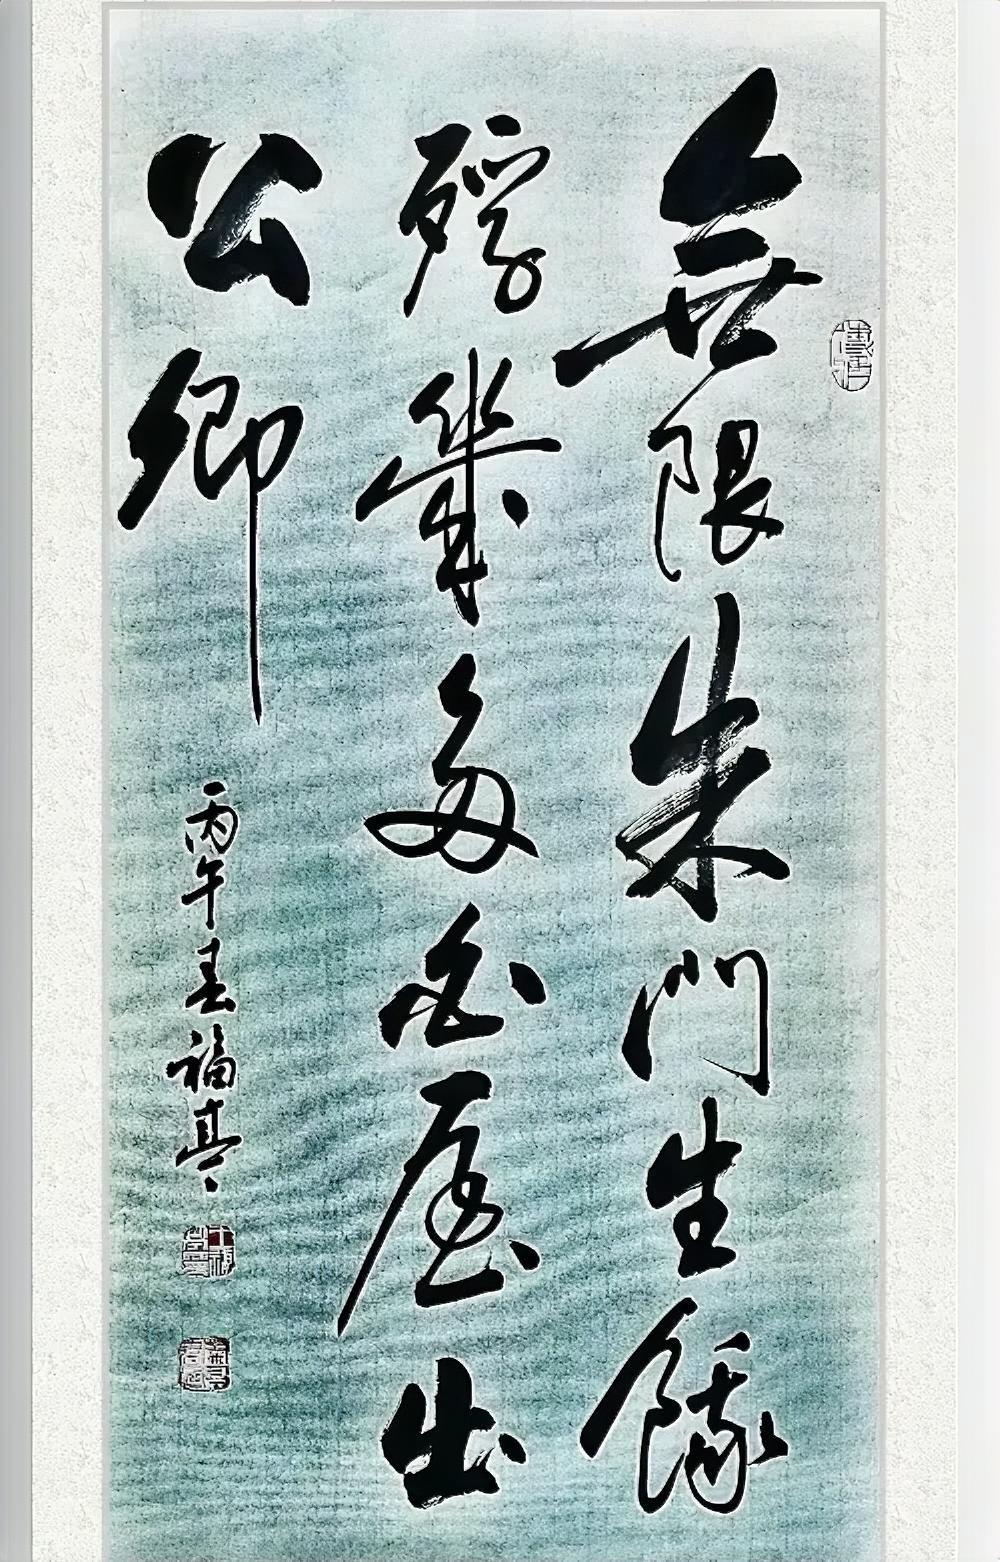 無限朱門生餓
殍幾多白屋出
公卿
丙午春福